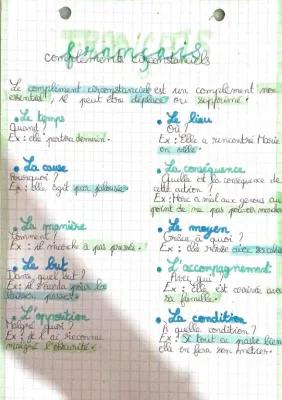 FRANÇAIS
français
compléments circonstanciels
Le complément circonstanciel est un complément non
essentiel, il peut être déplacé ou supprimé.
• Le temps
Quand ?
Ex : elle partira demain.
• Le lieu
Où ?
Ex : Elle a rencontré Marie
en ville.
• La cause
Pourquoi ?
Ex : Elle agit par jalousie.
• La conséquence
Quelle est la conséquence de
cette action ?
Ex : Marc a mal aux genoux au
point de ne pas pouvoir marcher
• La manière
Comment ?
Ex : il marche à pas pressés.
• Le moyen
Grâce à quoi ?
Ex : elle
• Le but
Dans quel but ?
Ex : il s'écarta pour les
laisser passer.
• L'accompagnement
Avec qui ?
Ex : Elle est
sa famille.
• L'opposition
Malgré quoi ?
Ex : je l'ai reconnu
malgré l'obscurité.
• La condition
A quelle condition ?
Ex : Si tout se passe bien
elle en fera son métier.